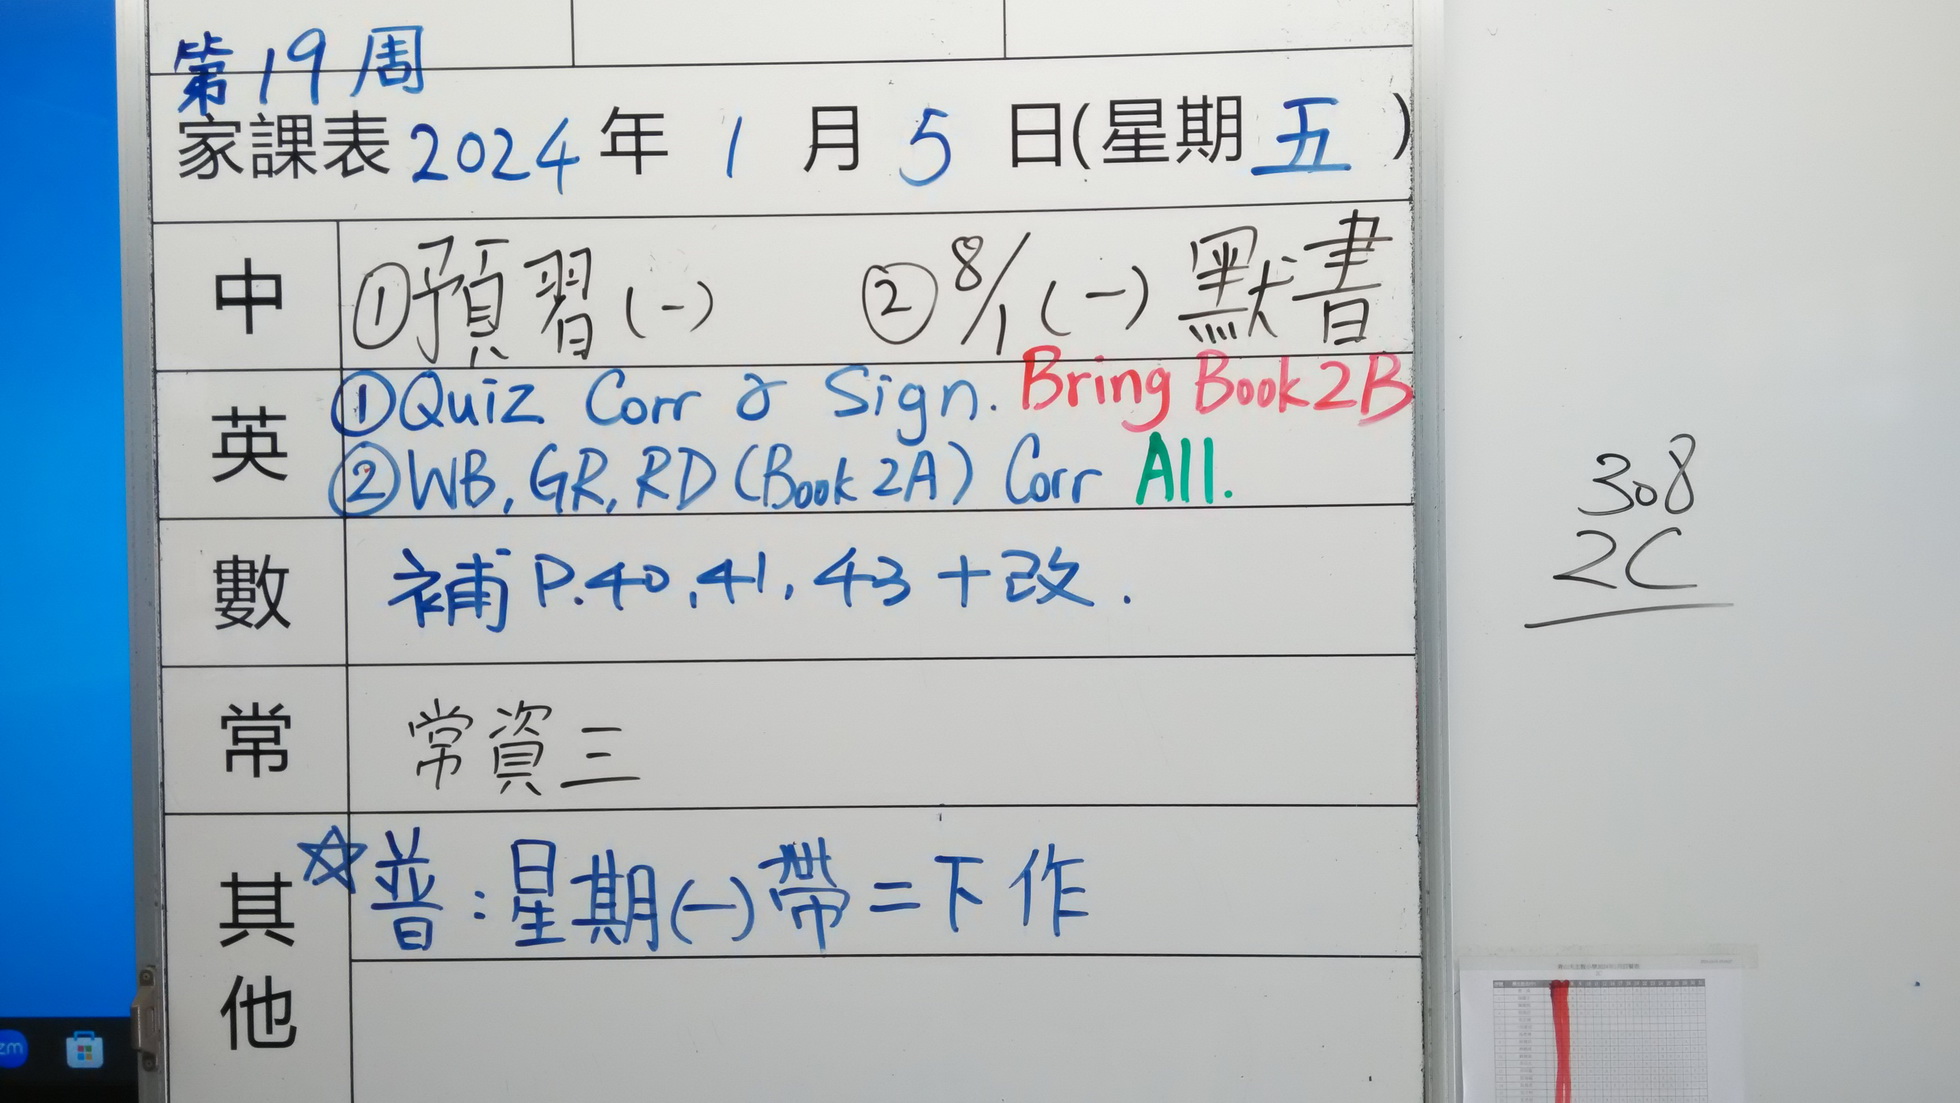 第19周
家課表2024年1月5日(星期五)
中 ①預習(一) ②8/1(一)默書
英 ①Quiz Corr & Sign. Bring Book2B
②WB, GR, RD (Book 2A) Corr All.
數 補P.40,41,43+改.
常 常資三
其他 ☆普:星期(一)帶二下作
308
2C
zm